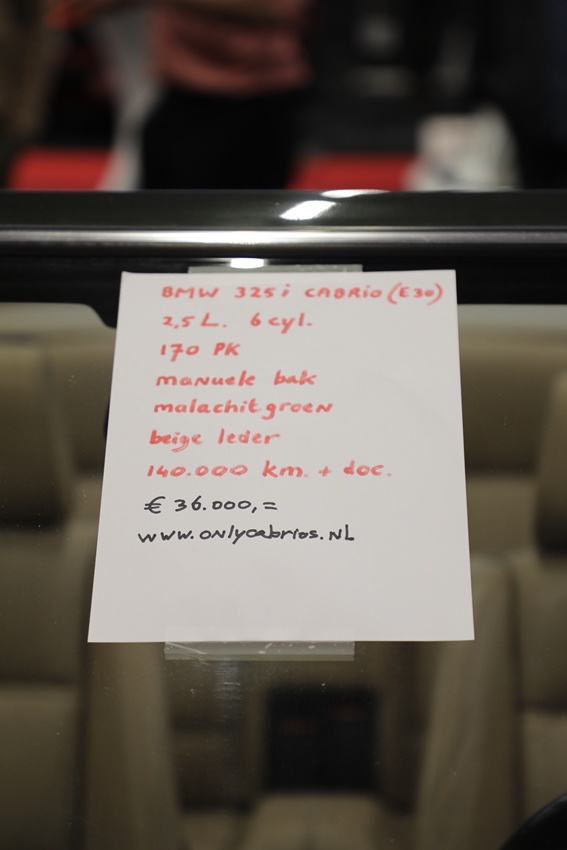 BMW 325i CABRIO (E30)
2,5 L. 6 cyl.
170 PK
manuele bak
malachitgroen
beige leder
140.000 km. + doc.
€ 36.000,=
www.onlycabrios.NL